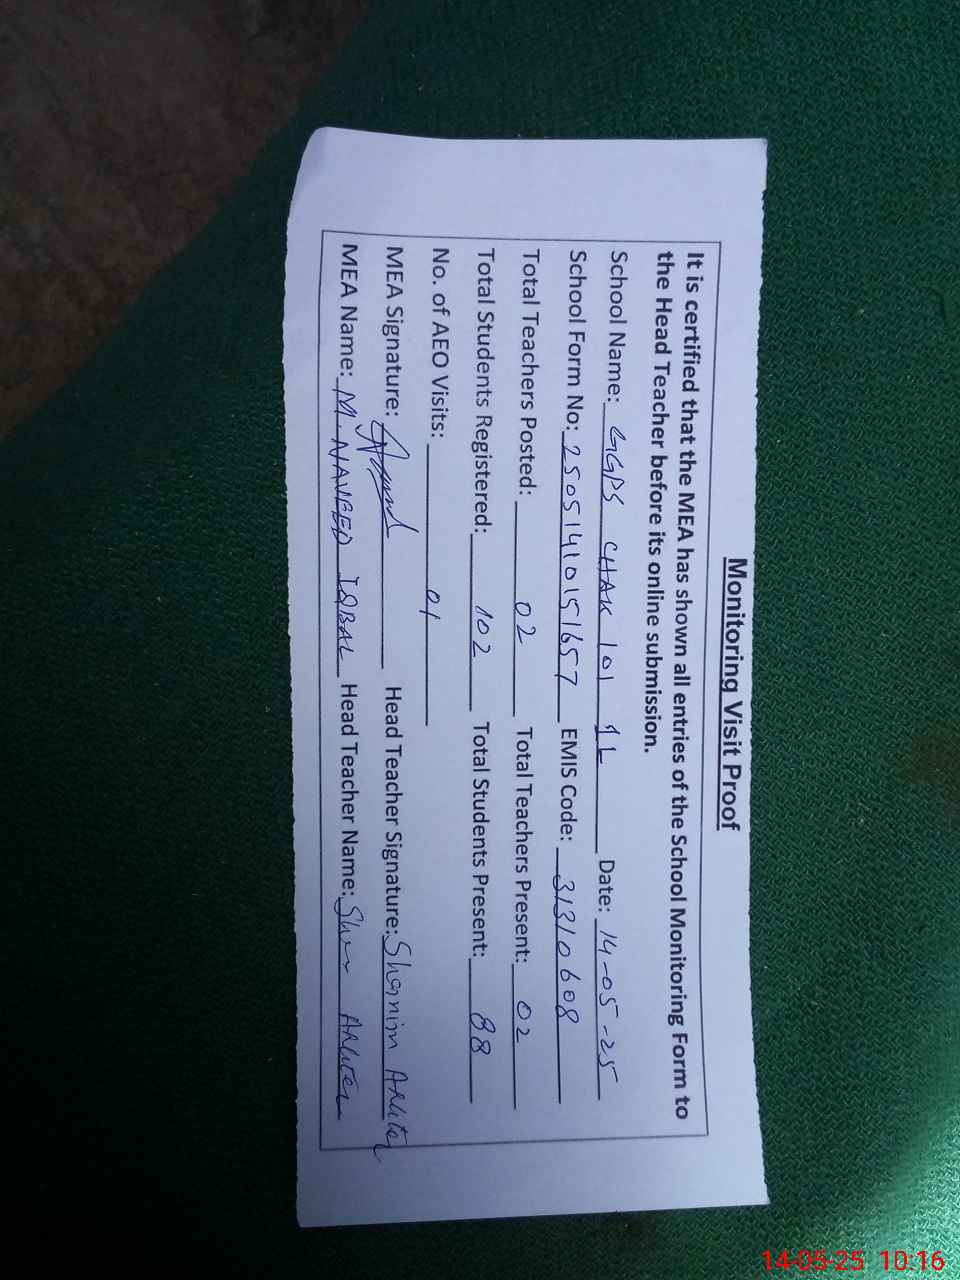 Monitoring Visit Proof
It is certified that the MEA has shown all entries of the School Monitoring Form to
the Head Teacher before its online submission.
School Name: GGPS CHAK 101 1L Date: 14-05-25
School Form No: 25051410151657 EMIS Code: 31310608
Total Teachers Posted: 02 Total Teachers Present: 02
Total Students Registered: 102 Total Students Present: 88
No. of AEO Visits: 01
MEA Signature: Head Teacher Signature: Shamim Akhter
MEA Name: M. NAVEED IQBAL Head Teacher Name: Akhter
14-05-25 10:16